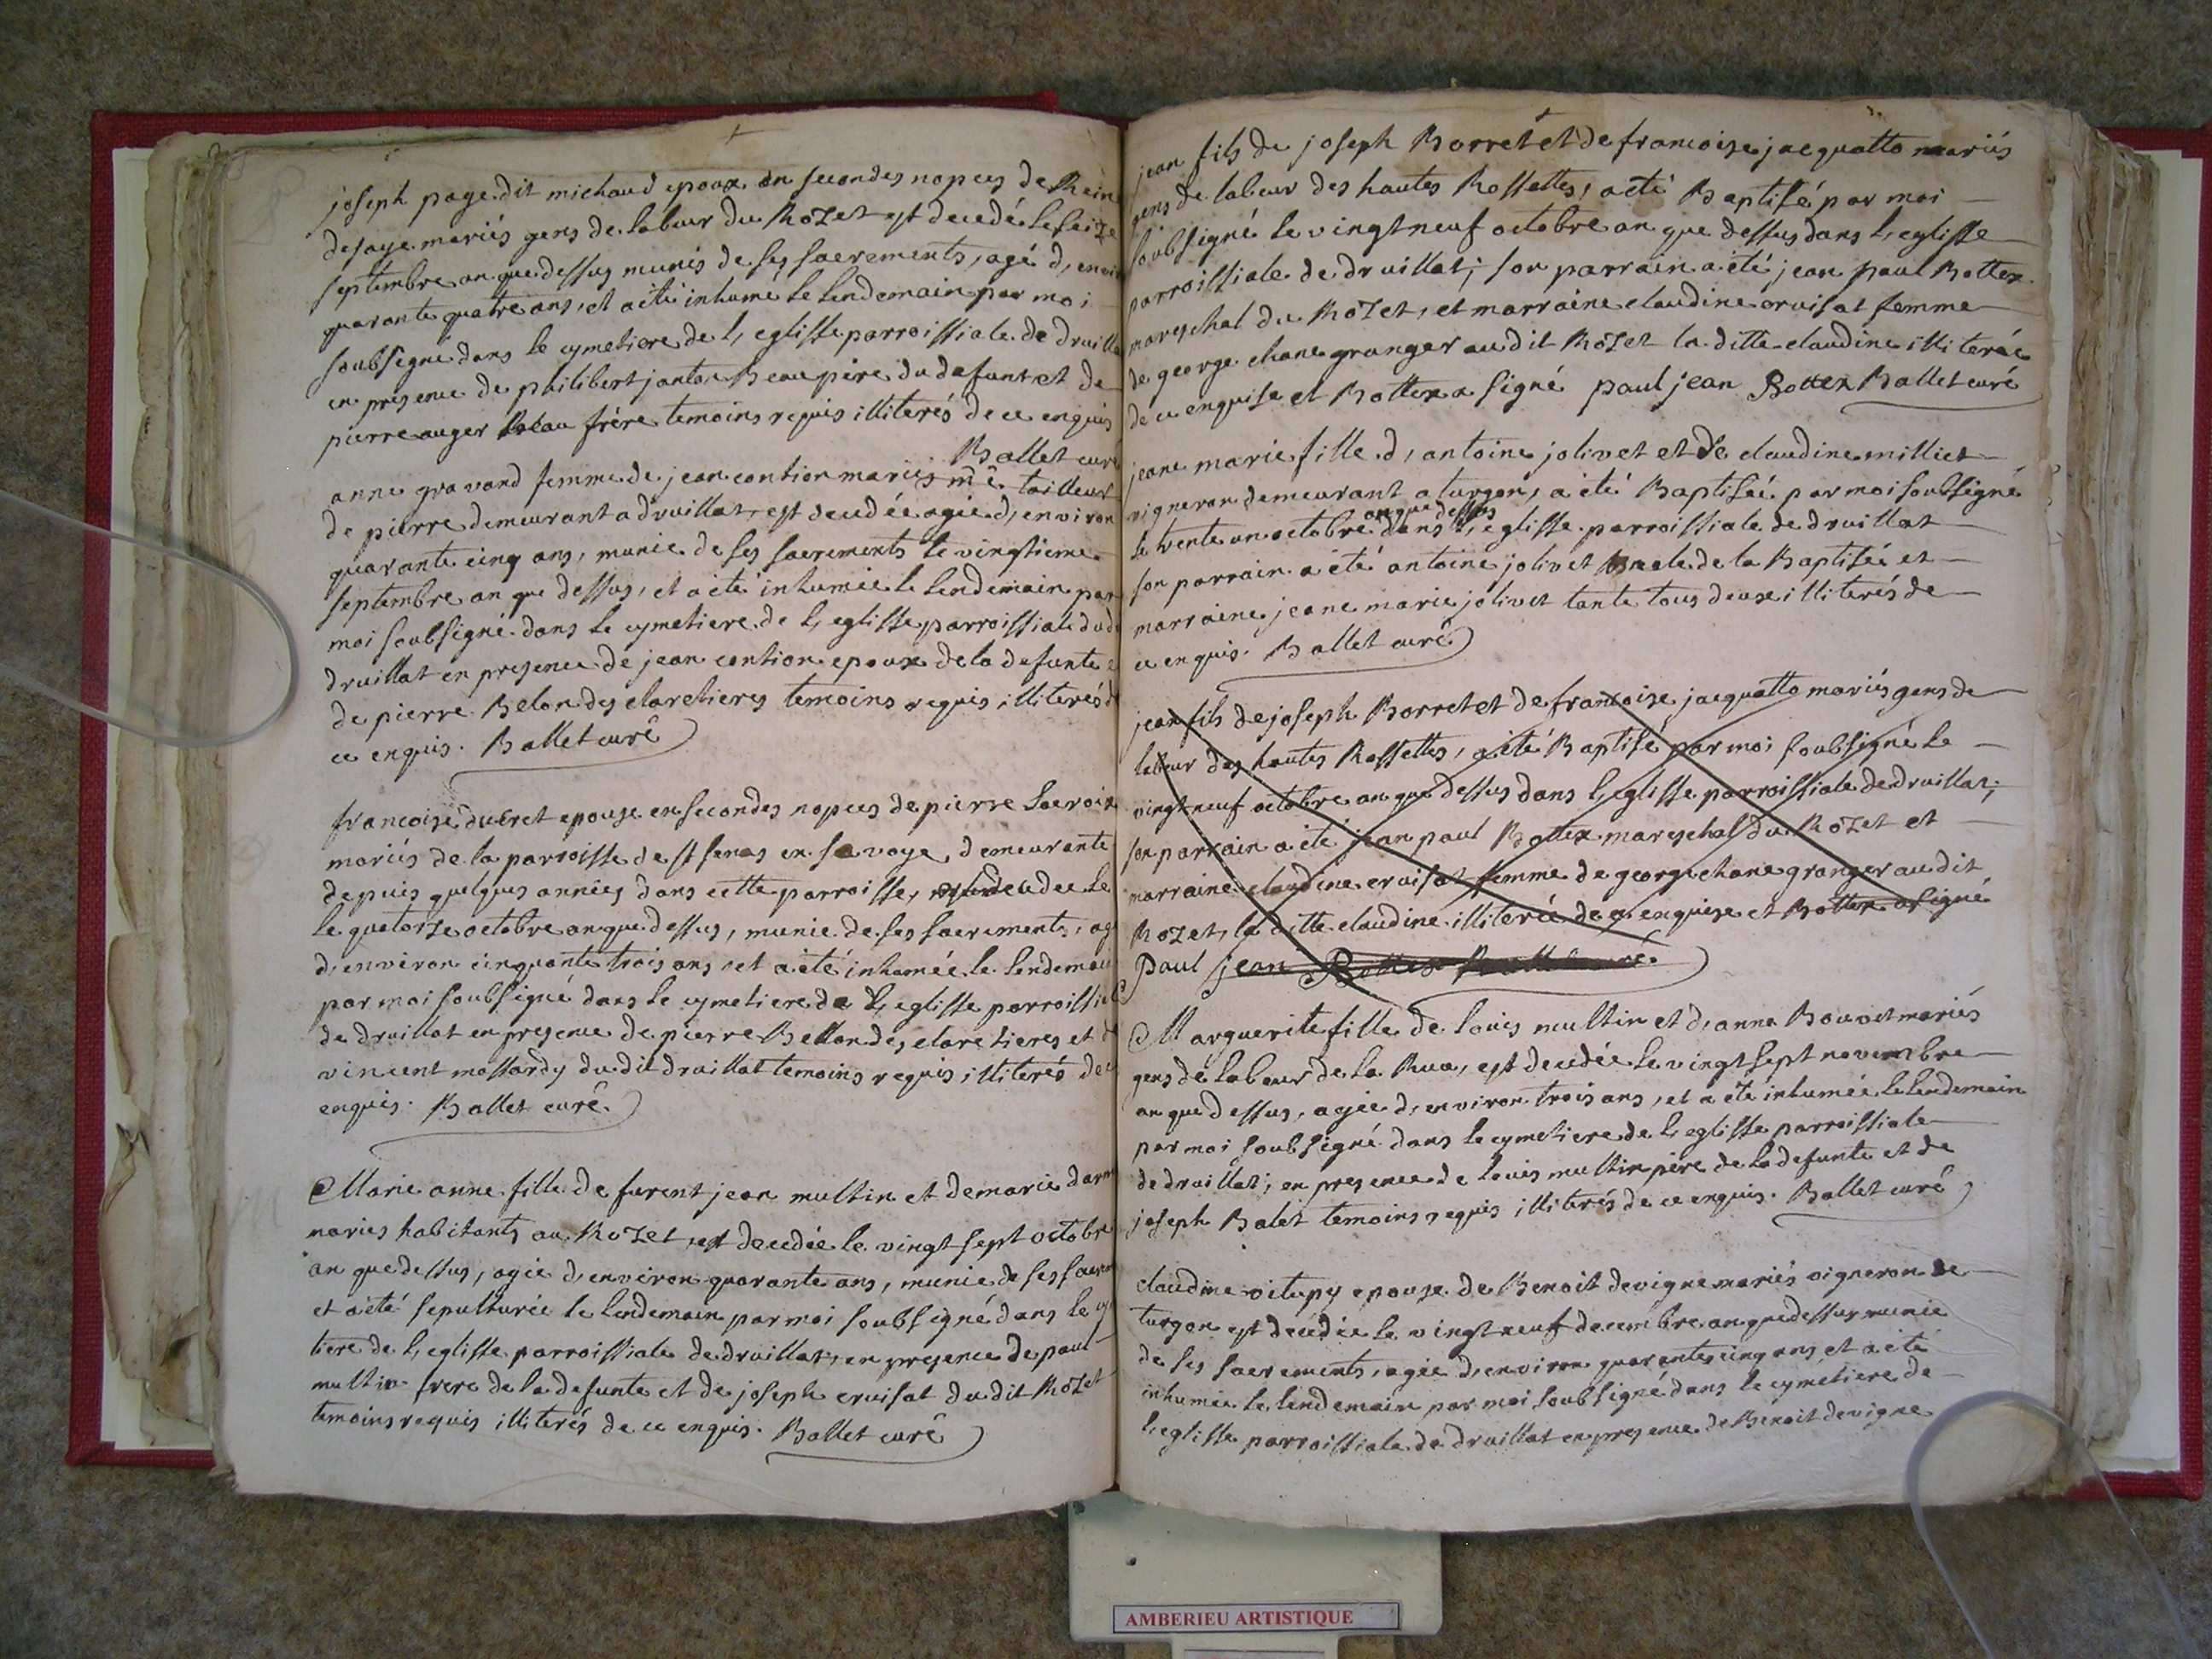 joseph page dit michaud epoux en secondes nopces de Reine
desaye mariés gens de labeur du Rozet est decedé le seize
septembre an que dessus munis de ses sacrements, agé d, environ
quarante quatre ans, et a été inhumé le lendemain par moi
soubsigné dans le cymetiere de l, eglisse parroissiale de druilla
en presence de philibert janton Beau père du defunt et de
pierre auger Beau frére temoins requis illiterés de ce enquis
Ballet curé
anne gravand femme de jean contion mariés me tailleur
de pierre demeurant a druillat, est decedée agée d, environ
quarante cinq ans, munie de ses sacrements le vingtieme
septembre an que dessus, et a été inhumée le lendemain par
moi soubsigné dans le cymetiere de l, eglisse parroissiale dud
druillat en presence de jean contion epoux de la defunte e
de pierre Belon des claretieres temoins requis illiterés d
ce enquis. Ballet curé
francoise ducret epouse en secondes nopces de pierre Lacroix
mariés de la parroisse de st jenas en savoye, demeurante
depuis quelques années dans cette parroisse, est decedee le
le quatorze octobre an que dessus, munie de ses sacrements, ag
d, environ cinquante trois ans, et a été inhumée le lendemain
par moi soubsigné dans le cymetiere de l, eglisse parroissial
de druillat en presence de pierre Bellon des claretieres et de
vincent massardy dudit druillat temoins requis illiterés de ce
enquis. Ballet curé
Marie anne fille de furent jean multin et de marie darm
maries habitants au Rozet, est decedée le vingt sept octobre
an que dessus, agée d, environ quarante ans, munie de ses sacrem
et a été sepulturée le lendemain par moi soubsigné dans le cy
tiere de l, eglisse parroissiale de druillat, en presence de paul
multin frere de la defunte et de joseph cruisat dudit Rozet
temoins requis illiterés de ce enquis. Ballet curé
jean fils de joseph Borret et de francoise jacquatto mariés
gens de labeur des hautes Rossettes, a été Baptisé par moi
soubsigné le vingt neuf octobre an que dessus dans l, eglisse
parroissiale de druillat; son parrain a été jean paul Bottex
mareschal du Rozet, et marraine claudine cruisat femme
de george chane granger audit Rozet la ditte claudine illiterée
de ce enquise et Bottex a signé paul jean Bottex Ballet curé
jeane marie fille d, antoine jolivet et de claudine milliet
vigneron demeurant a turgon, a été Baptisée par moi soubsigné
le trente un octobre an que dessus dans l, eglisse parroissiale de druillat
son parrain a été antoine jolivet oncle de la Baptisée et
marraine jeane marie jolivet tante tous deux illiterés de
ce enquis. Ballet curé
jean fils de joseph Borret et de francoise jacquatto mariés gens de
labeur des hautes Rossettes, a été Baptisé par moi soubsigné le
vingt neuf octobre an que dessus dans l, eglisse parroissiale de druillat;
son parrain a été jean paul Bottex mareschal du Rozet et
marraine claudine cruisat femme de george chane granger audit
Rozet, la ditte claudine illiterée de ce enquise et Bottex a signé
paul jean Bottex Ballet curé
Marguerite fille de louis multin et d, anne Bouvet mariés
gens de labeur de la Rua, est decedée le vingt sept novembre
an que dessus, agée d, environ trois ans, et a été inhumée le lendemain
par moi soubsigné dans le cymetiere de l, eglisse parroissiale
de druillat; en presence de louis multin père de la defunte et de
joseph Balet temoins requis illiterés de ce enquis. Ballet curé
claudine vitupy epouse de Benoit devigne mariés vigneron de
turgon est decedée le vingt neuf decembre an que dessus munie
de ses sacrements, agée d, environ quarante cinq ans et a été
inhumée le lendemain par moi soubsigné dans le cymetiere de
l, eglisse parroissiale de druillat en presence de Benoit devigne
AMBERIEU ARTISTIQUE